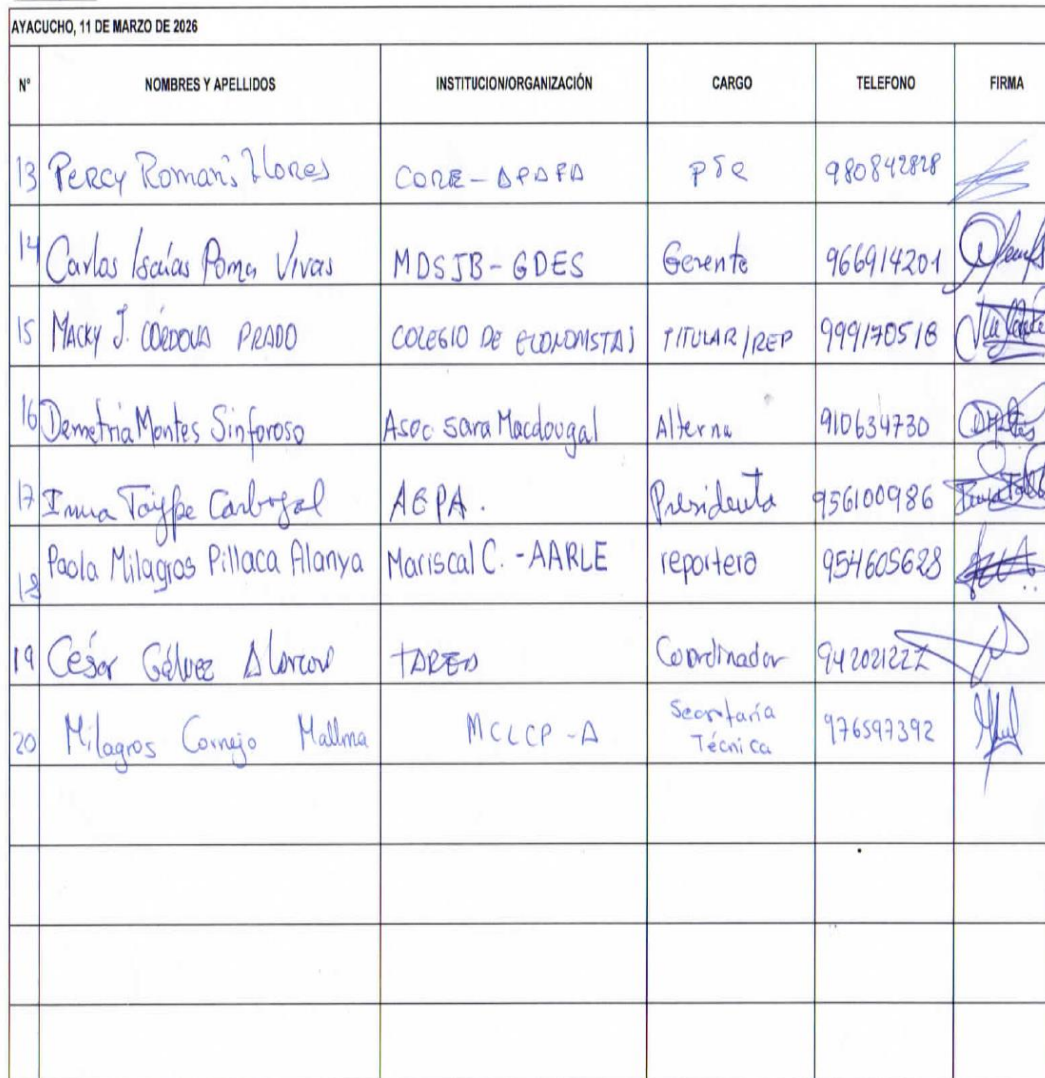 AYACUCHO, 11 DE MARZO DE 2026
N° NOMBRES Y APELLIDOS INSTITUCION/ORGANIZACIÓN CARGO TELEFONO FIRMA
13 Percy Romaní Flores CORE - APAFA 980842828
14 Carlos Isaías Poma Vivas MDSJB - GDES Gerente 966914201
15 MACKY J. CÓRDOVA PRADO COLEGIO DE ECONOMISTAS TITULAR/REP 999170518
16 Demetria Montes Sinforoso Asoc Sara Macdougal Alterna 910634730
17 Taype Carbajal AEPA. Presidenta 956100986
18 Paola Milagros Pillaca Alanya Mariscal C. - AARLE reportera 954605628
19 César Gálvez Alarcon TAREA Coordinador
20 Milagros Cornejo Mallma MCLCP - A Secretaría Técnica 976597392